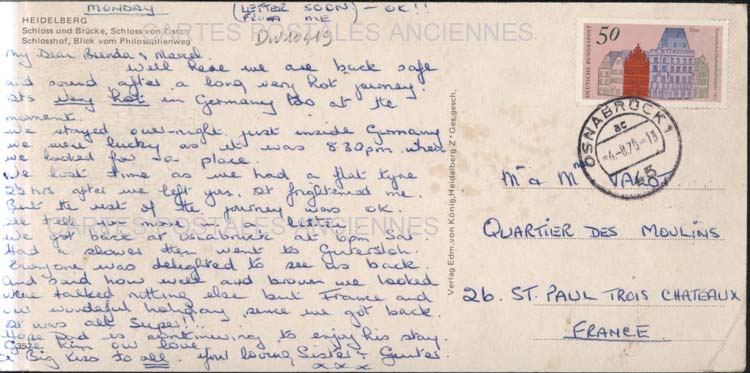 MONDAY
(LETTER SOON) - OK!!
FROM ME
HEIDELBERG
Schloss und Brücke, Schloss von Osten
Schlosshof, Blick vom Philosophenweg
My Dear Brenda & Marcel.
Well here we are back safe
and sound after a long very hot journey.
Its very hot in Germany too at the
moment.
We stayed over-night just inside Germany
we were lucky as it was 8.30pm when
we looked for a place.
We lost time as we had a flat tyre
2½ hrs after we left you, it frightened me.
But the rest of the journey was ok
tell you more in a letter.
We got back at Osnabruck at 6pm Sat.
Had a shower then went to Gutersloh.
Everyone was delighted to see us back.
And said how well and brown we looked
talked nothing else but France and
our wonderful holiday since we got back.
It was all Super!.
Hope Dad is continuing to enjoy his stay.
Give him our love.
A Big Kiss to all. Your loving Sister & Gunter
x x x
Verlag Edm. von König, Heidelberg Z * Ges. gesch.
50
DEUTSCHE BUNDESPOST
OSNABRÜCK 1
ac
-4.-8.75-13
45
Mr & Mme
QUARTIER DES MOULINS
26. ST. PAUL TROIS CHATEAUX
FRANCE.
CARTES POSTALES ANCIENNES
CARTES POSTALES ANCIENNES